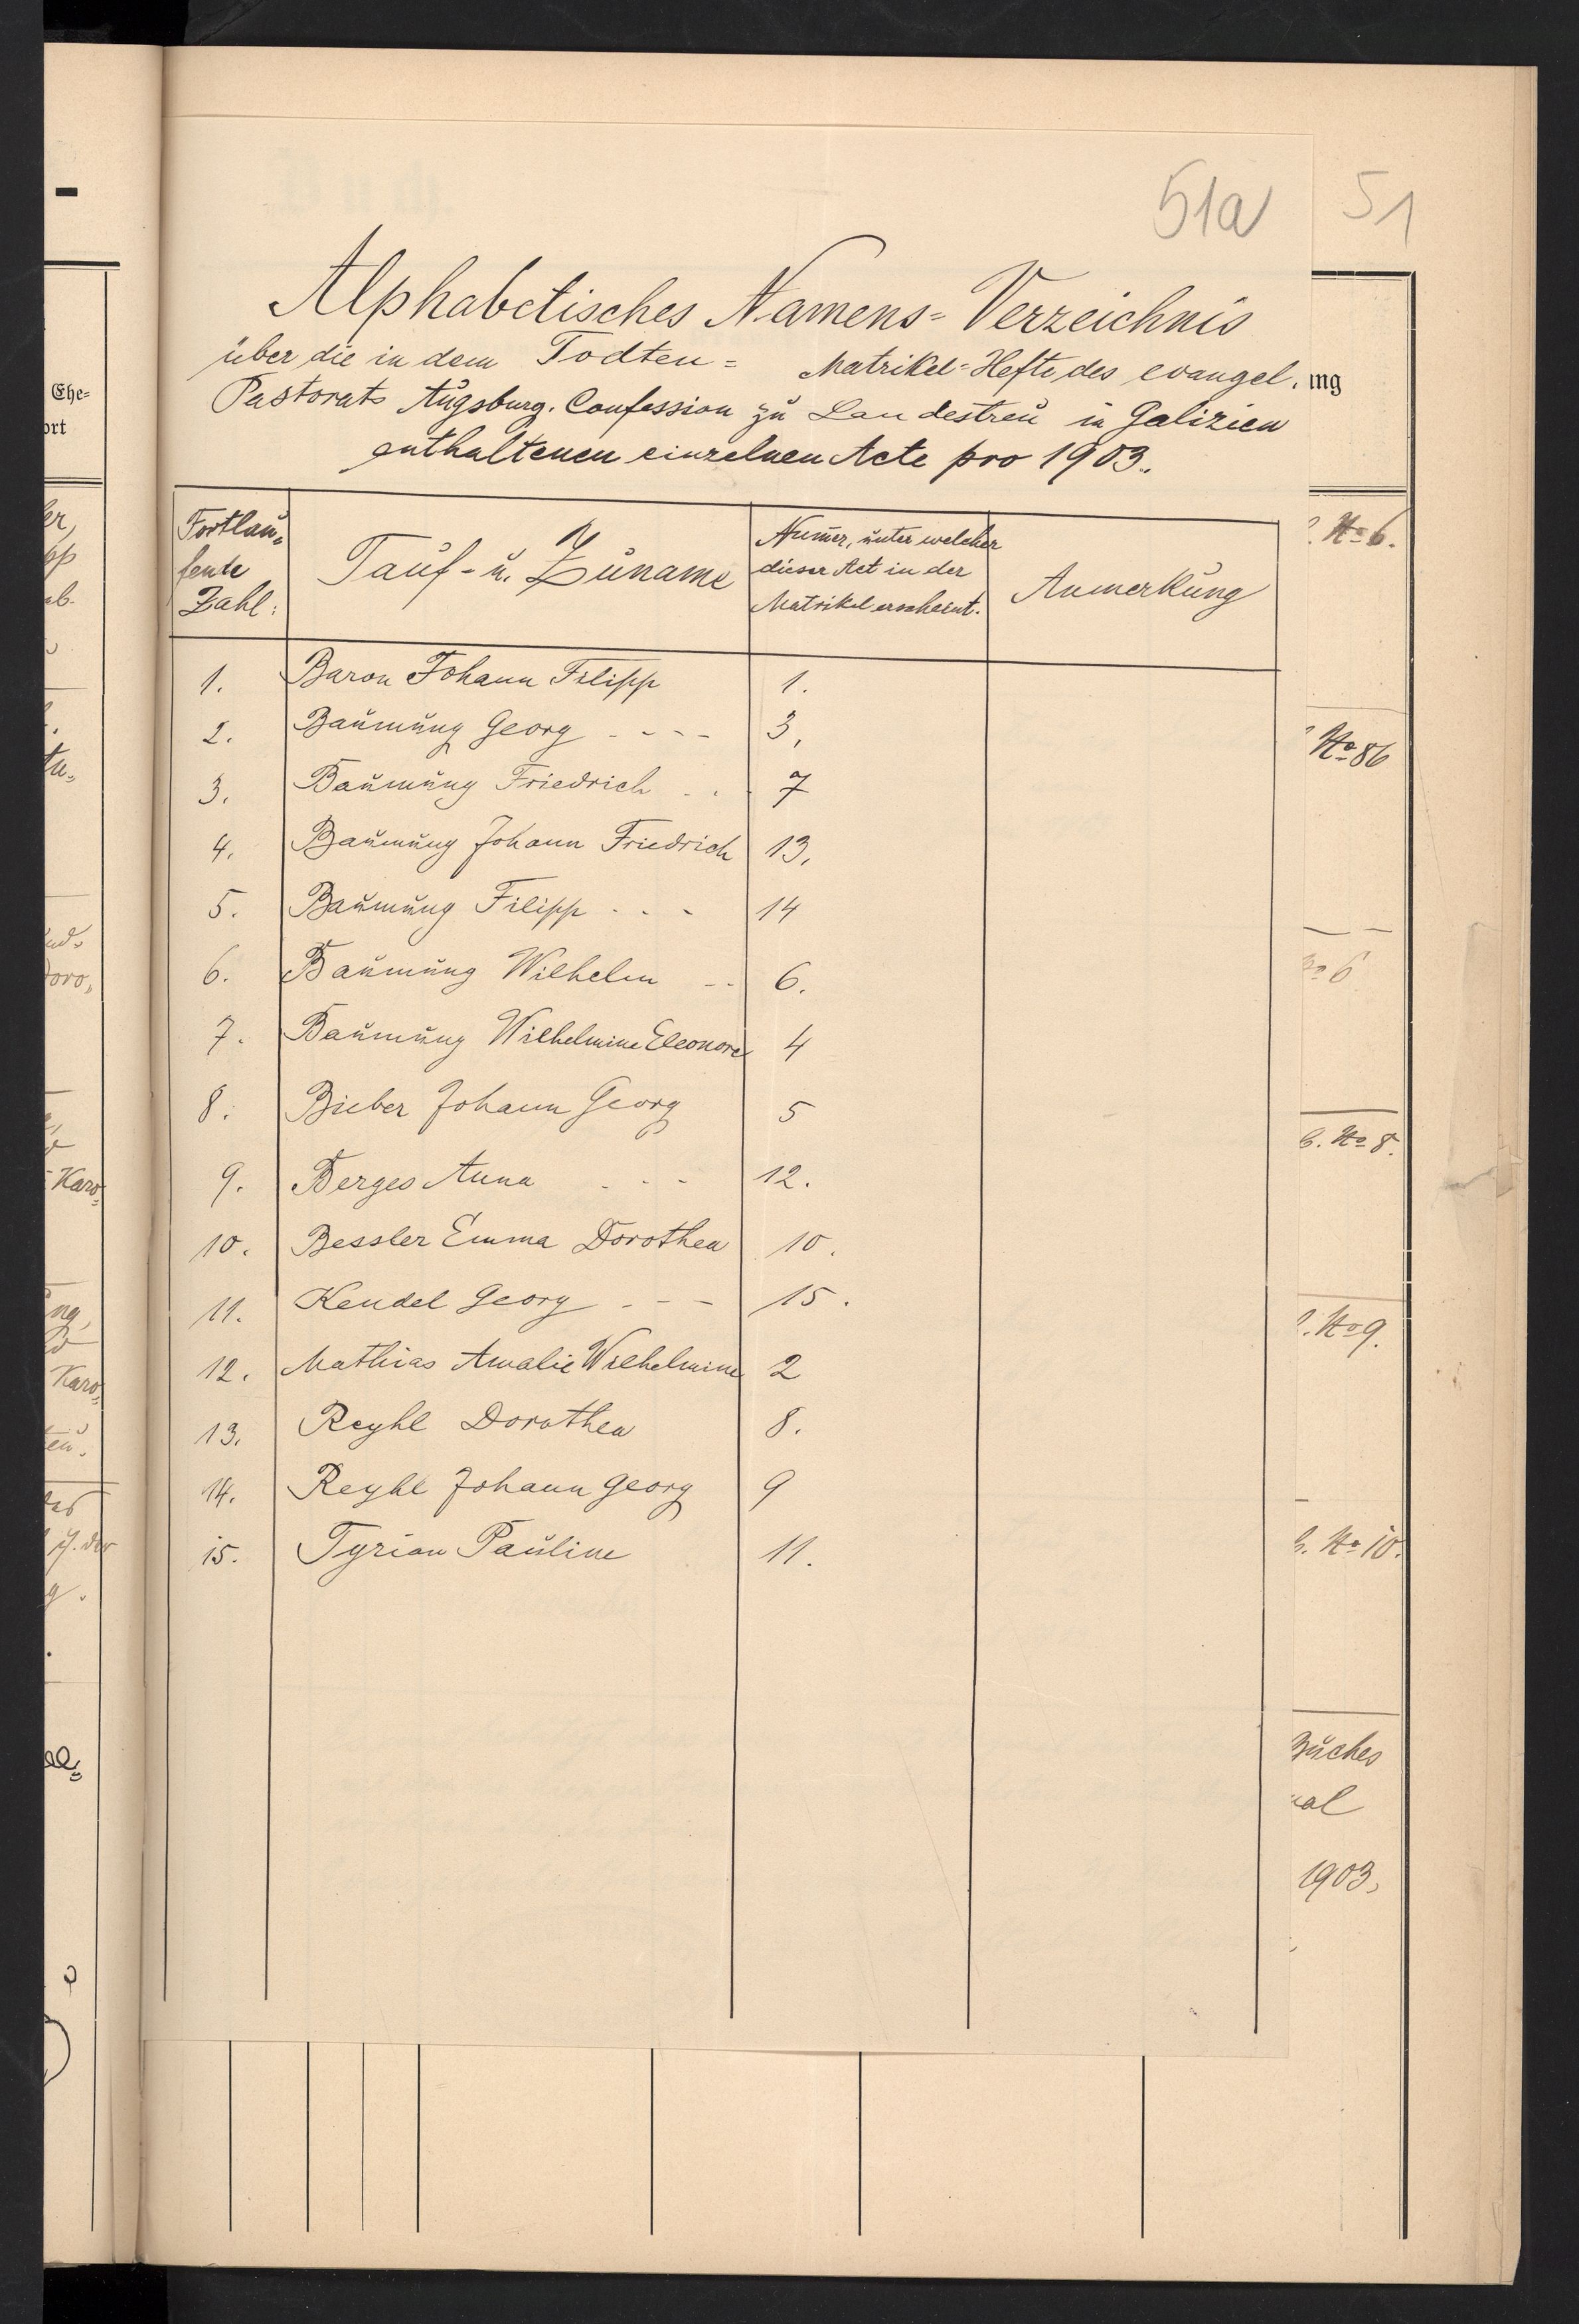 51a
51
Alphabetisches Namens=Verzeichnis
über die in dem Todten= Matrikel=Hefte des evangel.
Pastorats Augsburg. Confession zu Landestreu in Galizien
enthaltenen einzelnen Acte pro 1903.
Fortlau=
fende
Zahl:
Tauf- u. Zuname
Num̄er, unter welcher
dieser Act in der
Matrikel erscheint.
Anmerkung
1. Baron Johann Filipp 1.
2. Baumung Georg - - - - 3,
3. Baumung Friedrich - - 7
4. Baumung Johann Friedrich 13,
5. Baumung Filipp - - - 14
6. Baumung Wilhelm - - 6.
7. Baumung Wilhelmine Eleonore 4
8. Bieber Johann Georg 5
9. Berges Anna - - - 12.
10. Bessler Emma Dorothea 10.
11. Kendel Georg - - - 15.
12. Mathias Amalie Wilhelmine 2
13. Reyhl Dorothea 8.
14. Reyhl Johann Georg 9
15. Tyrian Pauline 11.
Ehe=
ort
Karo=
Karo=
ng
No 6.
No 86
No 6
No 8.
No 9.
No 10.
1903,